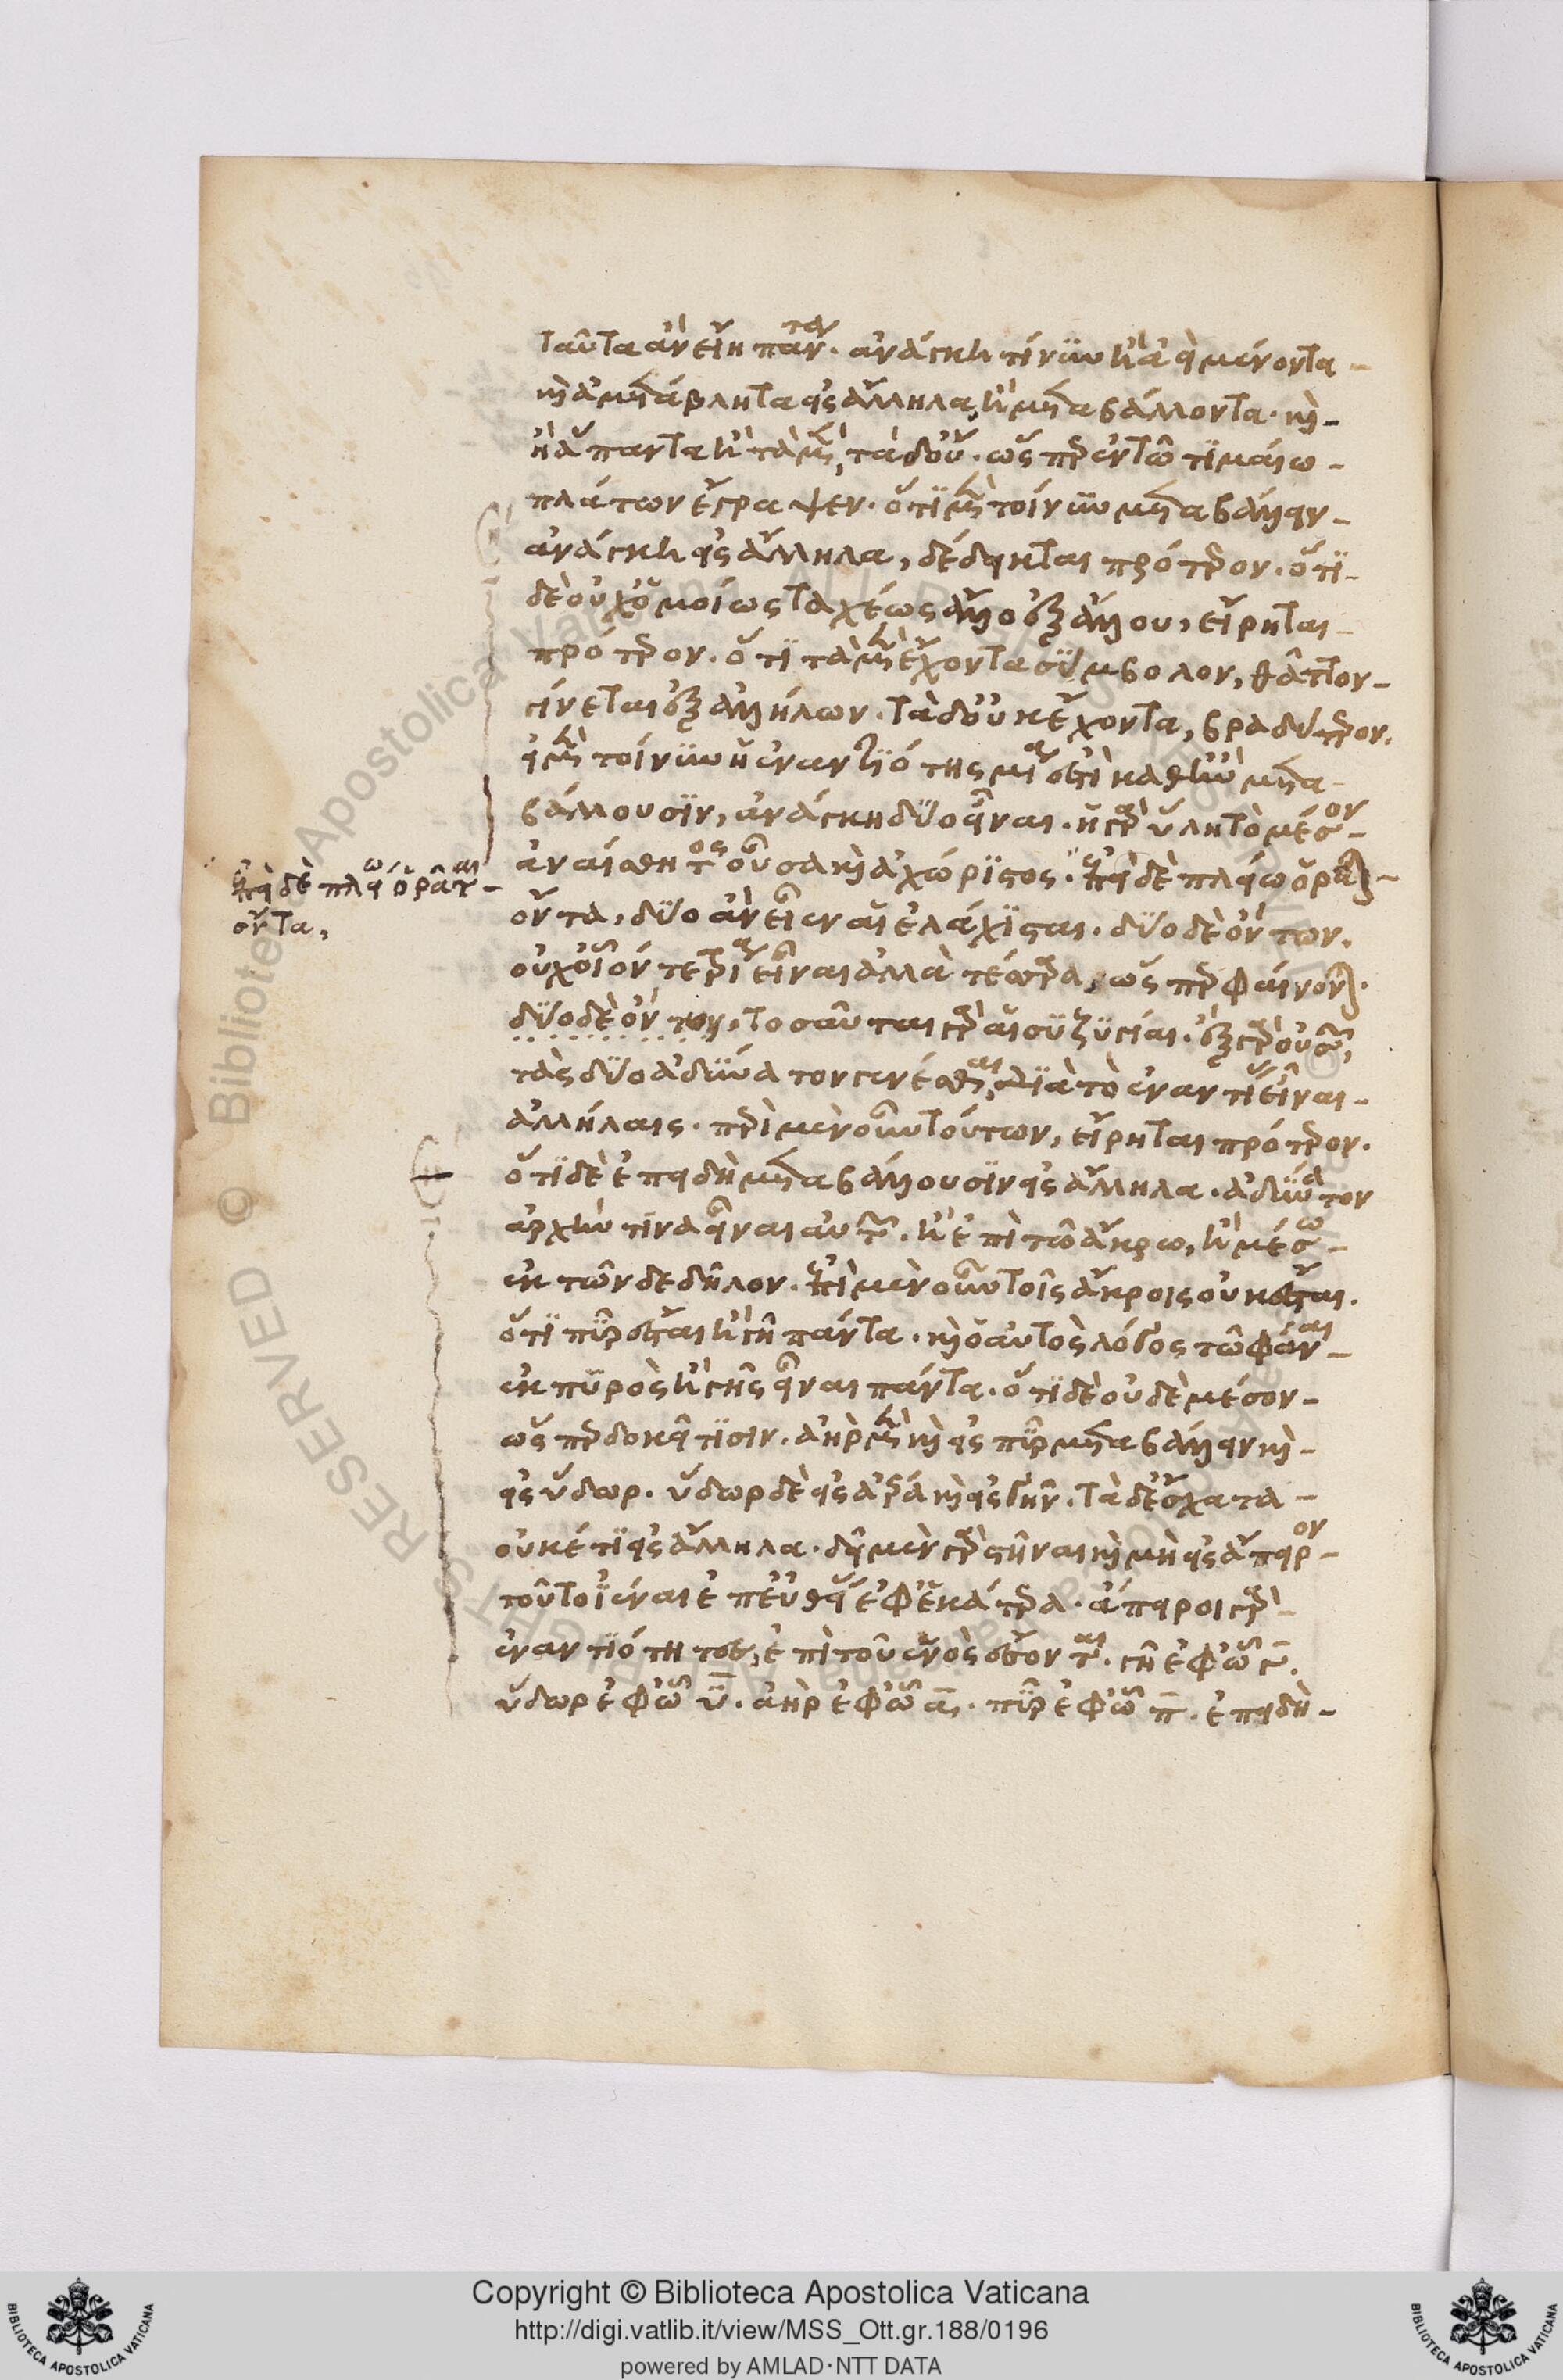 ταῦτα ἂν εἴη πάντα. ἀνάγκη τοίνυν ἢ ἀεὶ μένοντα
καὶ ἀμετάβλητα εἰς ἄλληλα, ἢ μεταβάλλοντα. καὶ
ἢ ἅπαντα ἢ τὰ μὲν, τὰ δ' οὔ. ὥσπερ ἐν τῶ τιμαίω
πλάτων ἔγραψεν. ὅτι μὲν τοίνυν μεταβάλλειν
ἀνάγκη εἰς ἄλληλα, δέδεικται πρότερον. ὅτι
δὲ οὐχ ὁμοίως ταχέως ἄλλο ἐξ ἄλλου, εἴρηται
πρότερον. ὅτι τὰ μὲν ἔχοντα σύμβολον, θᾶττον
γίνεται ἐξ ἀλλήλων. τὰ δ' οὐκ ἔχοντα, βραδύτερον.
εἰ μὲν τοίνυν ἡ ἐναντιότης μία ἐστὶ καθ' ἣν μετα
βάλλουσιν, ἀνάγκη δύο εἶναι. ἡ γὰρ ὕλη τὸ μέσον
ἀναίσθητος οὖσα καὶ ἀχώριστος. ἐπεὶ δὲ πλείω ὁρᾶται
ὄντα, δύο ἂν εἶεν αἱ ἐλάχισται. δύο δὲ ὄντων.
οὐχ οἷόν τε τρία εἶναι ἀλλὰ τέσσαρα, ὥσπερ φαίνονται.
δύο δὲ ὄντων, τοσαῦται γὰρ αἱ συζυγίαι. ἓξ γὰρ οὐσῶν,
τὰς δύο ἀδύνατον γενέσθαι, διὰ τὸ ἐναντίαι εἶναι
ἀλλήλαις. περὶ μὲν οὖν τούτων, εἴρηται πρότερον.
ὅτι δὲ ἐπειδὴ μεταβάλλουσιν εἰς ἄλληλα. ἀδύνατον
ἀρχήν τινα εἶναι αὐτῶν. ἢ ἐπὶ τῶ ἄκρω, ἢ μέσω
ἐκ τῶνδε δῆλον. ἐπὶ μὲν οὖν τοῖς ἄκροις οὐκ ἔσται.
ὅτι πῦρ ἔσται ἢ γῆ πάντα. καὶ ὁ αὐτὸς λόγος τῶ φάναι
ἐκ πυρὸς ἢ γῆς εἶναι πάντα. ὅτι δὲ οὐδὲ μέσον
ὥσπερ δοκεῖ τισιν. ἀὴρ μὲν καὶ εἰς πῦρ μεταβάλλειν καὶ
εἰς ὕδωρ. ὕδωρ δὲ εἰς ἀέρα καὶ εἰς γῆν. τὰ δ' ἔσχατα
οὐκέτι εἰς ἄλληλα. δεῖ μὲν γὰρ στῆναι καὶ μὴ εἰς ἄπειρον
τοῦτο ἰέναι ἐπ' εὐθείας ἐφ' ἑκάτερα. ἄπειροι γὰρ
ἐναντιότητες, ἐπὶ τοῦ ἑνὸς ἔσονται. γῆ ἐφ' ὧ γ.
ὕδωρ ἐφ' ὧ υ. ἀὴρ ἐφ' ὧ α. πῦρ ἐφ' ὧ π. ἐπειδὴ
ἐπεὶ δὲ πλείω ὁρᾶται
ὄντα,
RESERVED © Biblioteca Apostolica Vaticana
Copyright © Biblioteca Apostolica Vaticana
http://digi.vatlib.it/view/MSS_Ott.gr.188/0196
powered by AMLAD·NTT DATA
BIBLIOTECA APOSTOLICA VATICANA
BIBLIOTECA APOSTOLICA VATICANA